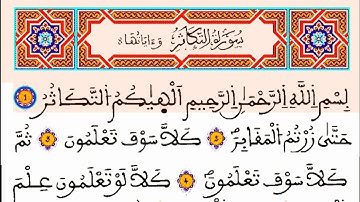 سُورَةُ التَّكَاثُرِ وَءَايَاتُهَا ٨
بِسْمِ اللَّهِ الرَّحْمَٰنِ الرَّحِيمِ أَلْهَيٰكُمُ التَّكَاثُرُ 1
حَتَّىٰ زُرْتُمُ الْمَقَابِرَ 2 كَلَّا سَوْفَ تَعْلَمُونَ 3 ثُمَّ
كَلَّا سَوْفَ تَعْلَمُونَ 4 كَلَّا لَوْ تَعْلَمُونَ عِلْمَ